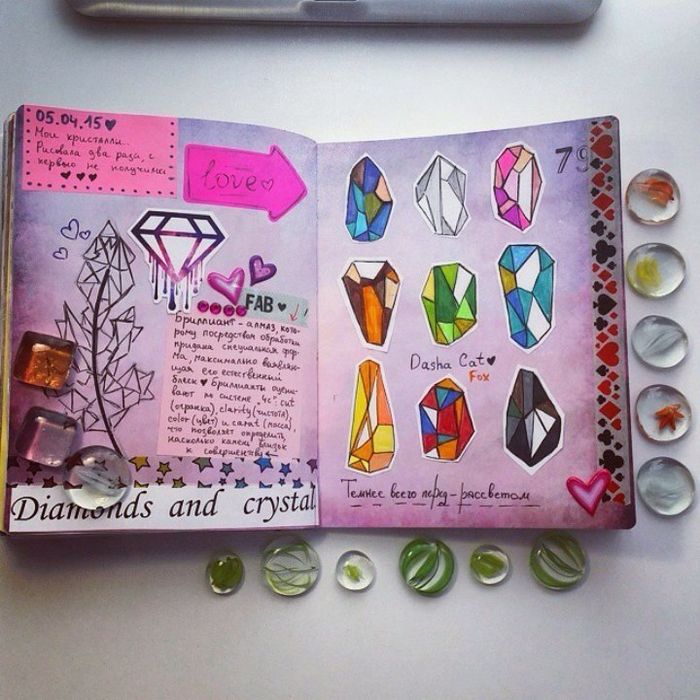 05.04.15♥
Мои кристаллы..
Рисовала два раза, с
первого не получилось
♥♥♥
love♡
FAB♥
Бриллиант - алмаз, кото-
рому посредством обработки
придана специальная фор-
ма, максимально выявляю-
щая его естественный
блеск ♥ Бриллианты оцени-
вают по системе „4c“: cut
(огранка), clarity (чистота),
color (цвет) и carat (масса),
что позволяет определить,
насколько камень близок
к совершенству
Diamonds and crystal
79
Dasha Cat♥
Fox
Темнее всего перед-рассветом